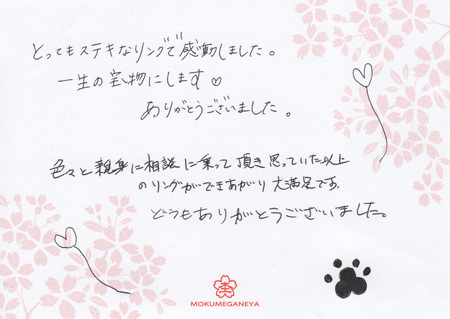 とってもステキなリングで感動しました。
一生の宝物にします♡
ありがとうございました。
色々と親身に相談に乗って頂き思っていた以上
のリングができあがり大満足です。
どうもありがとうございました。
MOKUMEGANEYA